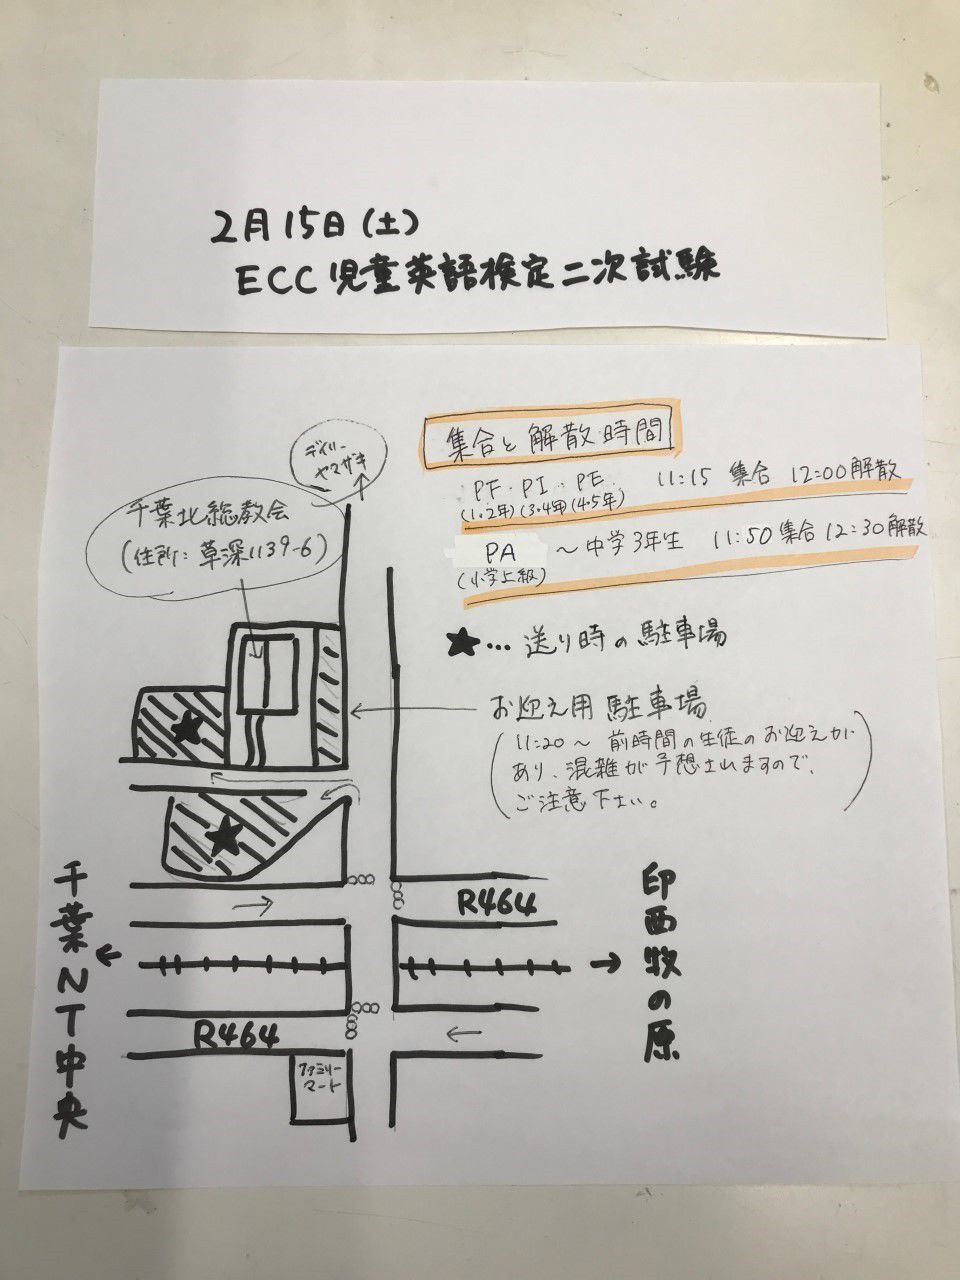 2月15日(土)
ECC児童英語検定二次試験
集合と解散時間
PF・PI・PE 11:15 集合 12:00解散
(1・2年)(3・4年)(4・5年)
PA ～中学3年生 11:50集合 12:30解散
(小学上級)
★…送り時の駐車場
お迎え用駐車場
(11:20～ 前時間の生徒のお迎えが
あり、混雑が予想されますので、
ご注意下さい。)
デイリー
ヤマザキ
千葉北総教会
(住所:草深1139-6)
★
★
千葉NT中央
R464
印西牧の原
R464
ファミリー
マート